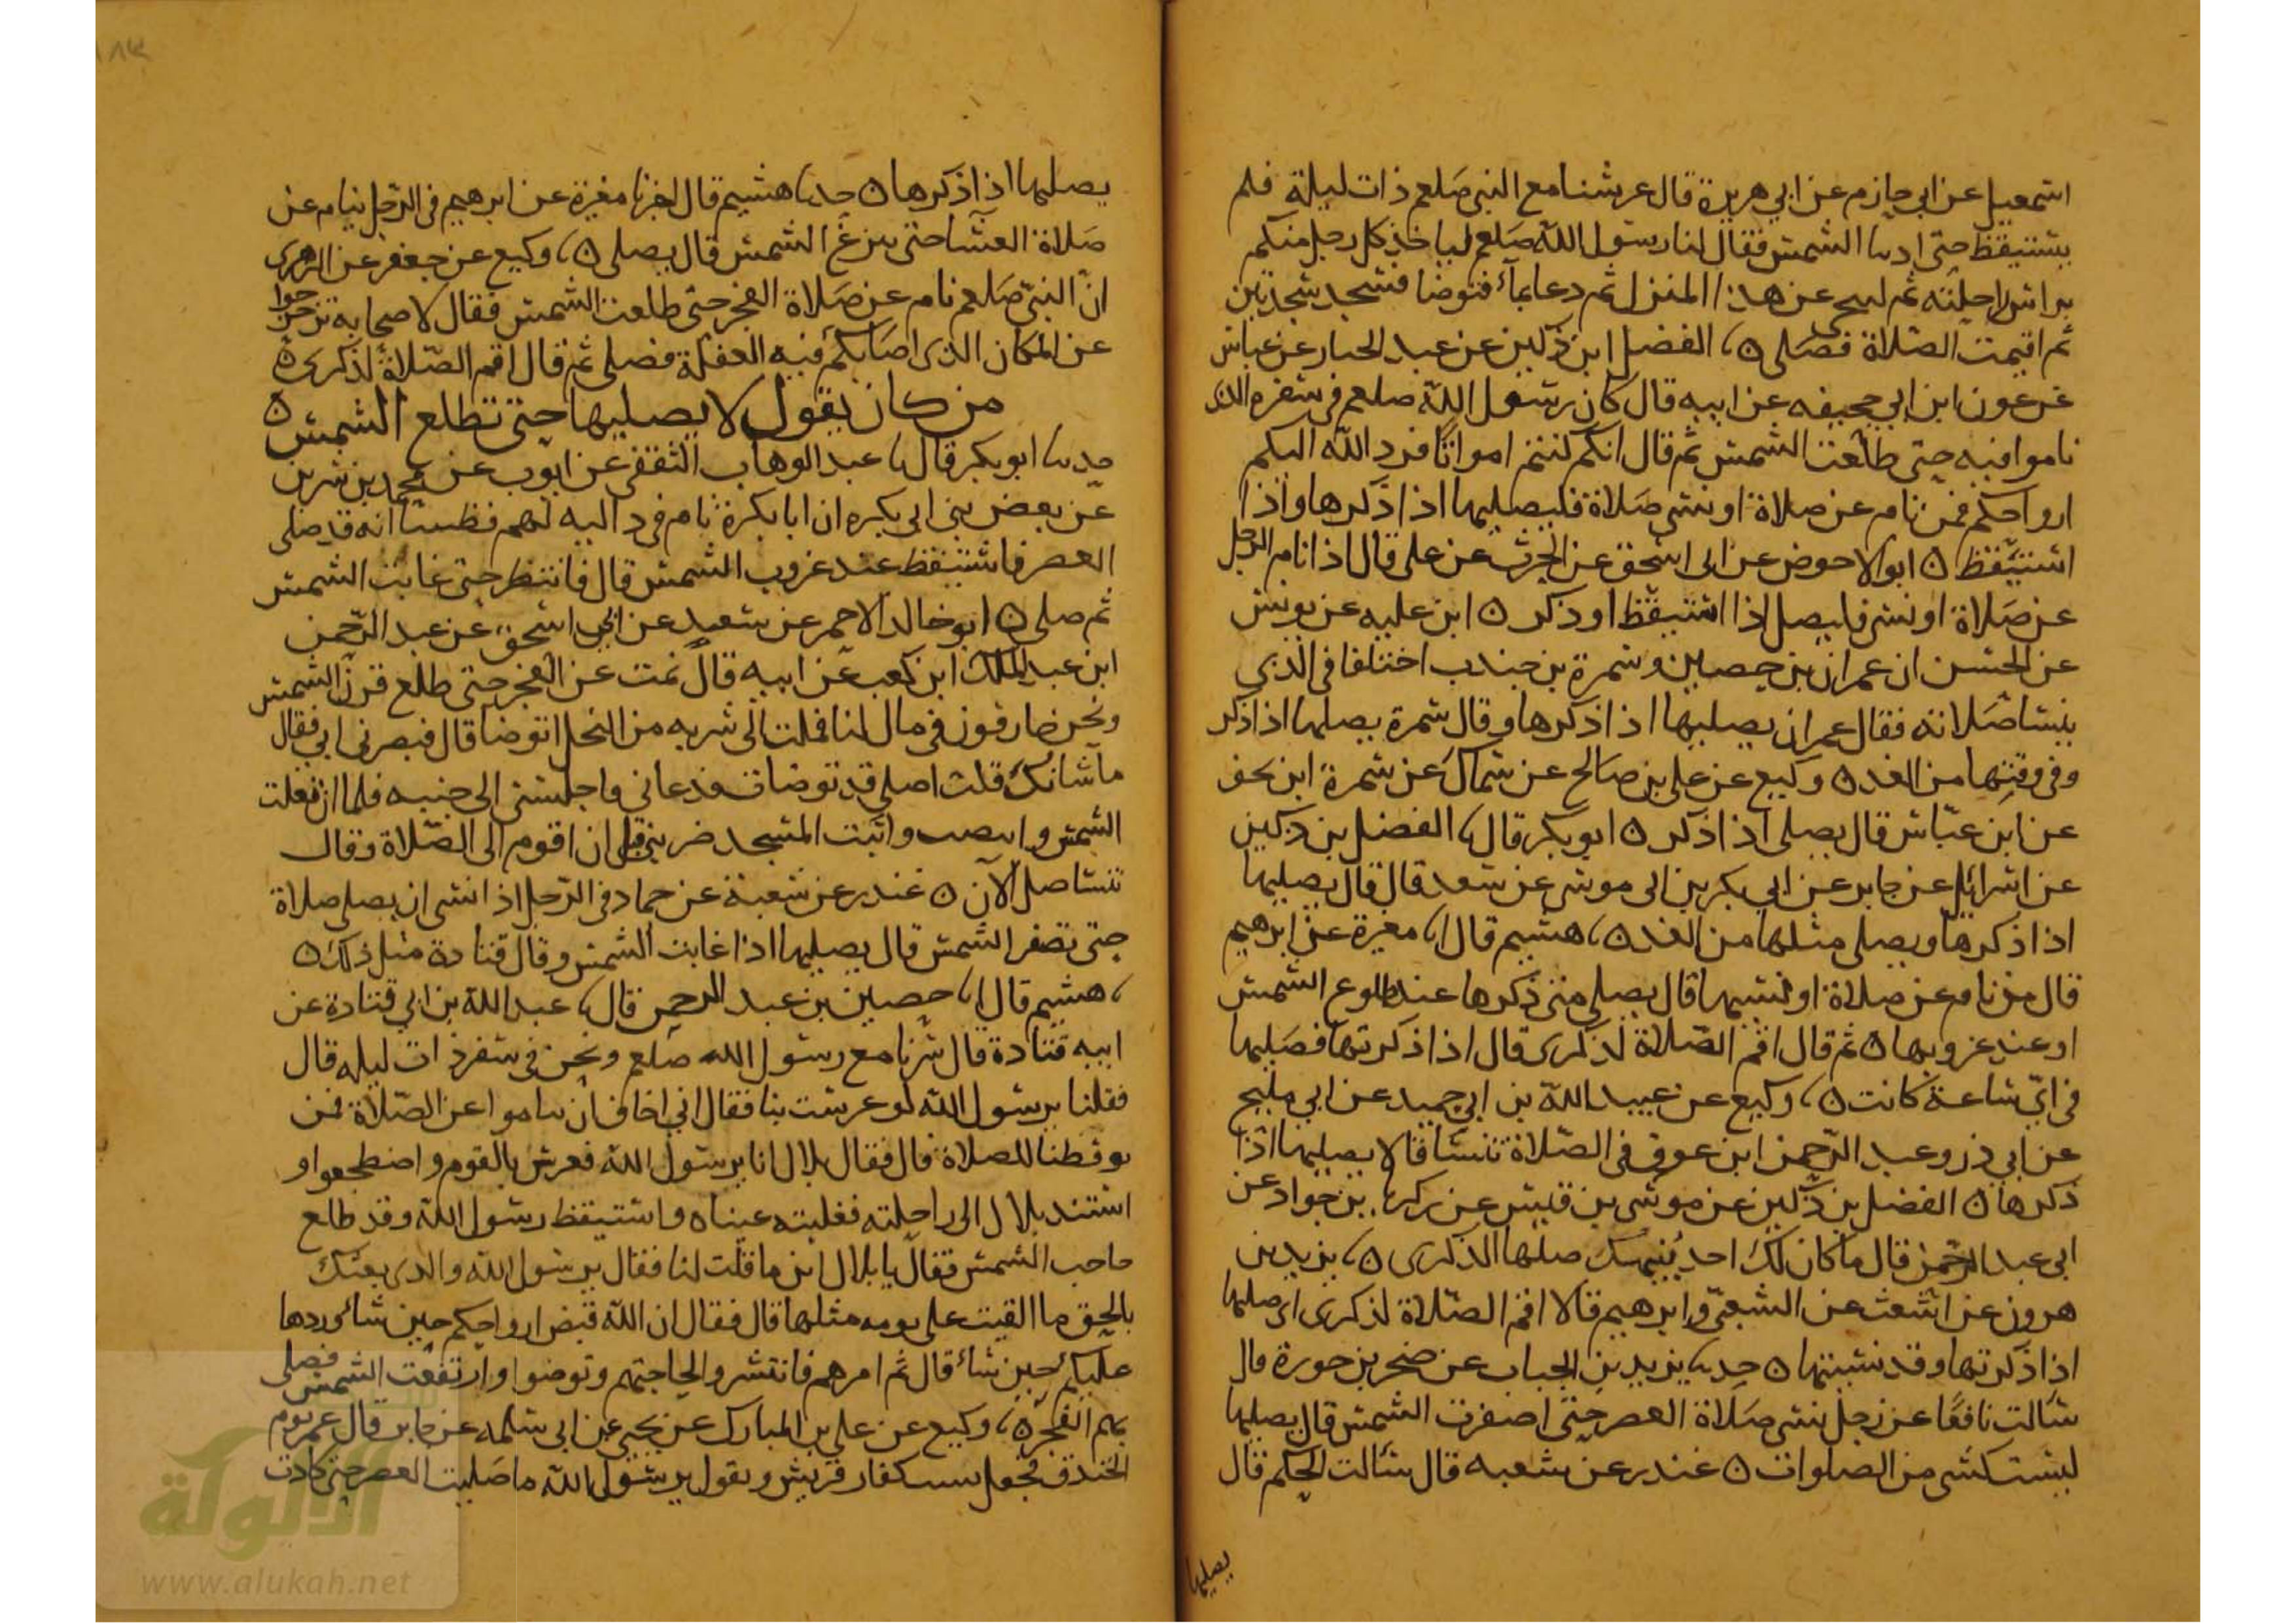 اسمعيل عن ابي حازم عن ابي هريرة قال عرسنا مع النبي صلعم ذات ليلة فلم
يستيقظ حتى اذا الشمس فقال لنا رسول الله صلعم لياخذ كل رجل منكم
براس راحلته ثم ليتنحى عن هذا المنزل ثم دعا بماء فتوضا فسجد سجدتين
ثم اقيمت الصلاة فصلى ه نا الفضل ابن دكين عن عبد الجبار عن عباس
عن عون ابن ابي جحيفه عن ابيه قال كان رسول الله صلعم في سفره الذي
ناموا فيه حتى طلعت الشمس ثم قال انكم كنتم امواتا فرد الله اليكم
ارواحكم فمن نام عن صلاة او نسي صلاة فليصليها اذا ذكرها واذا
استيقظ ه ابو الاحوص عن ابي اسحق عن الحرث عن علي قال اذا نام الرجل
عن صلاة او نسي فليصل اذا استيقظ او ذكر ه ابن عليه عن يونس
عن الحسن ان عمران بن حصين وسمرة بن جندب اختلفا في الذي
ينسا صلاته فقال عمران يصليها اذا ذكرها وقال سمرة يصليها اذا ذكر
وفي وقتها من الغد ه وكيع عن علي بن صالح عن سماك عن سمرة ابن نحف
عن ابن عباس قال يصلي اذا ذكر ه ابو بكر قال نا الفضل بن دكين
عن اسرائيل عن جابر عن ابي بكر بن ابي موسى عن سعد قال قال يصليها
اذا ذكرها ويصلي مثلها من الغد ه نا هشيم قال انا مغيرة عن ابرهيم
قال من نام عن صلاة او نسيها قال يصلي متى ذكرها عند طلوع الشمس
او عند غروبها ه ثم قال اقم الصلاة لذكرى قال اذا ذكرتها فصليها
في اي ساعة كانت ه نا وكيع عن عبيد الله بن ابي حميد عن ابي مليح
عن ابي ذر وعبد الرحمن ابن عوف في الصلاة تنسا قالا يصليها اذا
ذكرها ه الفضل بن دكين عن موسى بن قيس عن زكريا بن جراد عن
ابي عبد الرحمن قال ما كان لك احد ينبهك صلها الذكرى ه نا يزيد بن
هرون عن اشعث عن الشعبي وابرهيم قالا اقم الصلاة لذكرى اي صليها
اذا ذكرتها وقد نسيتها ه حدثنا يزيد بن الحباب عن صخر بن جورة قال
سالت نافعا عن رجل نسي صلاة العصر حتى اصفرت الشمس قال يصليها
ليست كشي من الصلوات ه غندر عن شعبه قال سالت الحكم قال
يصليها
يصليها اذا ذكرها ه حدثنا هشيم قال اخبرنا مغيرة عن ابرهيم في الرجل ينام عن
صلاة العشا حتى بزغ الشمس قال يصلي ه نا وكيع عن جعفر عن الزهري
ان النبي صلعم نام عن صلاة الفجر حتى طلعت الشمس فقال لاصحابه تزحزحوا
عن المكان الذي اصابكم فيه الغفلة فصلى ثم قال اقم الصلاة لذكرى ه
من كان يقول لا يصليها حتى تطلع الشمس ه
حدثنا ابو بكر قال نا عبد الوهاب الثقفي عن ايوب عن محمد بن سيرين
عن بعض بني ابي بكره ان ابا بكرة نام في دالية لهم فظننا انه قد صلى
العصر فاستيقظ عند غروب الشمس قال فانتظر حتى غابت الشمس
ثم صلى ه ابو خالد الاحمر عن سعيد عن ابي اسحق عن عبد الرحمن
ابن عبد الملك ابن كعب عن ابيه قال نمت عن الفجر حتى طلع قرن الشمس
ونحن خارفون في مال لنا فملت الى شربه من النخل اتوضا قال فبصر بي ابي فقال
ما شانك قلت اصلي قد توضات فدعاني فاجلسني الى جنبه فلما ان تعلت
الشمس وابيضت واتيت المسجد ضربني قبل ان اقوم الى الصلاة وقال
تنسا صل الآن ه غندر عن شعبة عن حماد في الرجل اذا نسي ان يصلي صلاة
حتى تصفر الشمس قال يصليها اذا غابت الشمس وقال قتادة مثل ذلك ه
نا هشيم قال انا حصين بن عبد الرحمن قال نا عبد الله بن ابي قتادة عن
ابيه قتادة قال سرنا مع رسول الله صلعم ونحن في سفر ذات ليله قال
فقلنا يرسول الله لو عرست بنا فقال اني اخاف ان تناموا عن الصلاة فمن
يوقظنا للصلاة قال فقال بلال انا يرسول الله فعرس بالقوم واضطجعوا و
استند بلال الى راحلته فغلبته عيناه واستيقظ رسول الله وقد طلع
حاجب الشمس فقال يا بلال اين ما قلت لنا فقال يرسول الله والذي بعثك
بالحق ما القيت علي نومه مثلها قال فقال ان الله قبض ارواحكم حين شاء وردها
عليكم حين شاء قال ثم امرهم فانتشروا لحاجتهم وتوضوا وارتفعت الشمس فصلى
بهم الفجر ه نا وكيع عن علي بن المبارك عن يحيى عن ابي سلمه عن جابر قال عمر يوم
الخندق فجعل يسب كفار قريش ويقول يرسول الله ما صليت العصر حتى كادت
الألوكة
www.alukah.net